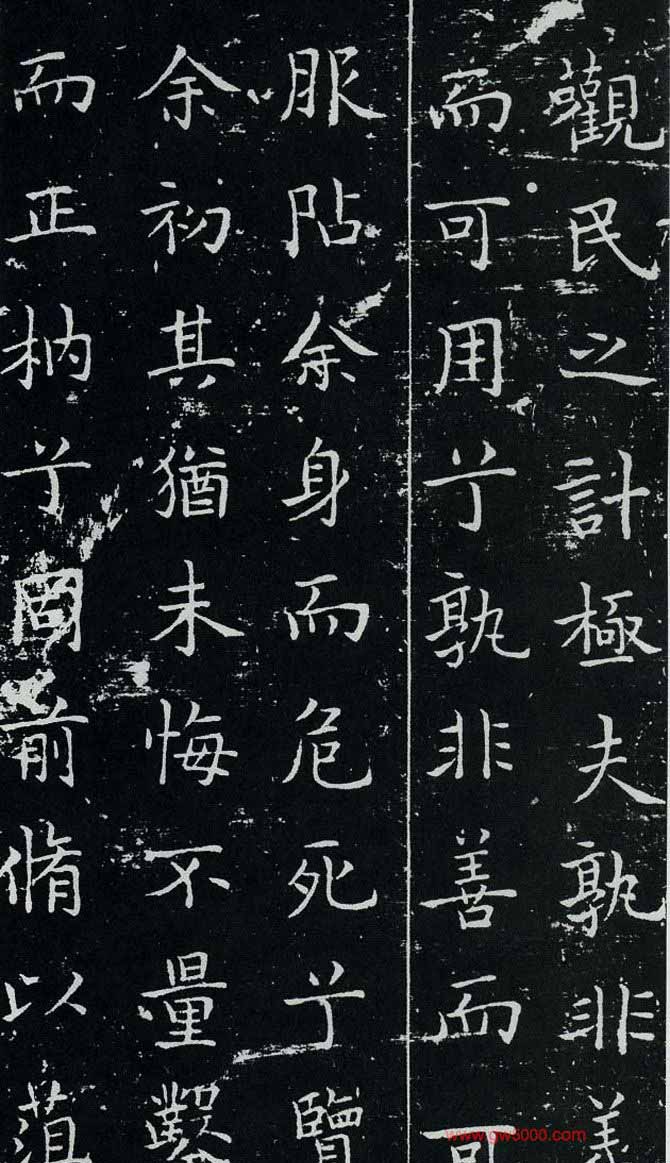 觀民之計極夫孰非義
而可用兮孰非善而可
服阽余身而危死兮覽
余初其猶未悔不量鑿
而正枘兮固前脩以菹
www.gw5000.com